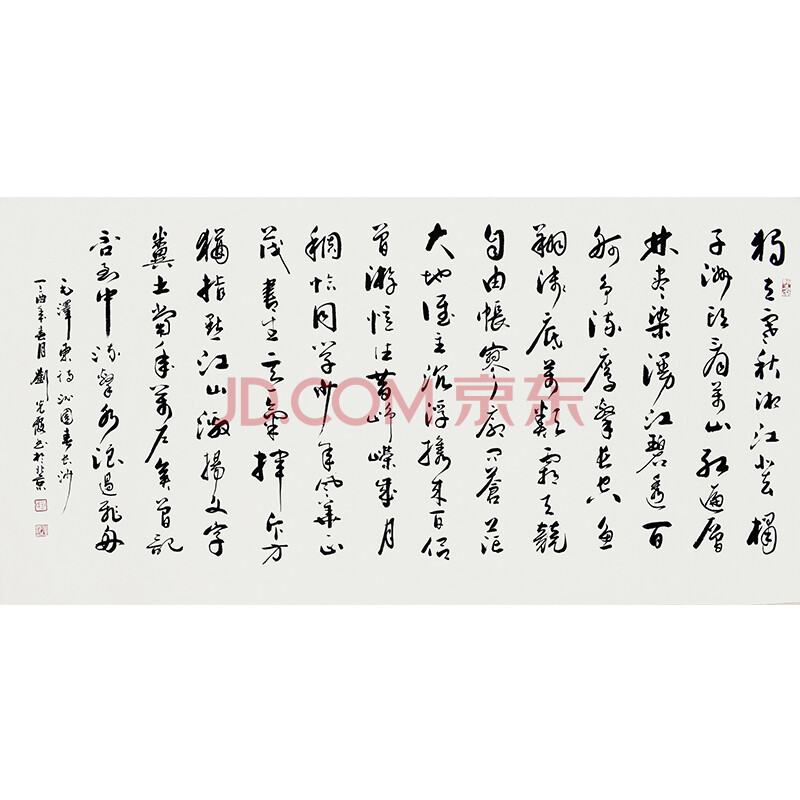 獨立寒秋湘江北去橘
子洲頭看萬山紅遍層
林盡染漫江碧透百
舸争流鷹擊長空魚
翔淺底萬類霜天競
自由帳寥廓问蒼茫
大地誰主沉浮携來百侣
曾游憶往昔崢嶸歲月
稠恰同学少年风華正
茂書生意氣揮斥方
猶指點江山激揚文字
糞土當年萬户侯曾記
否到中流擊水浪遏飛舟
毛澤東詞沁園春長沙
丁酉年春月劉光霞書於北京
JD.COM 京东